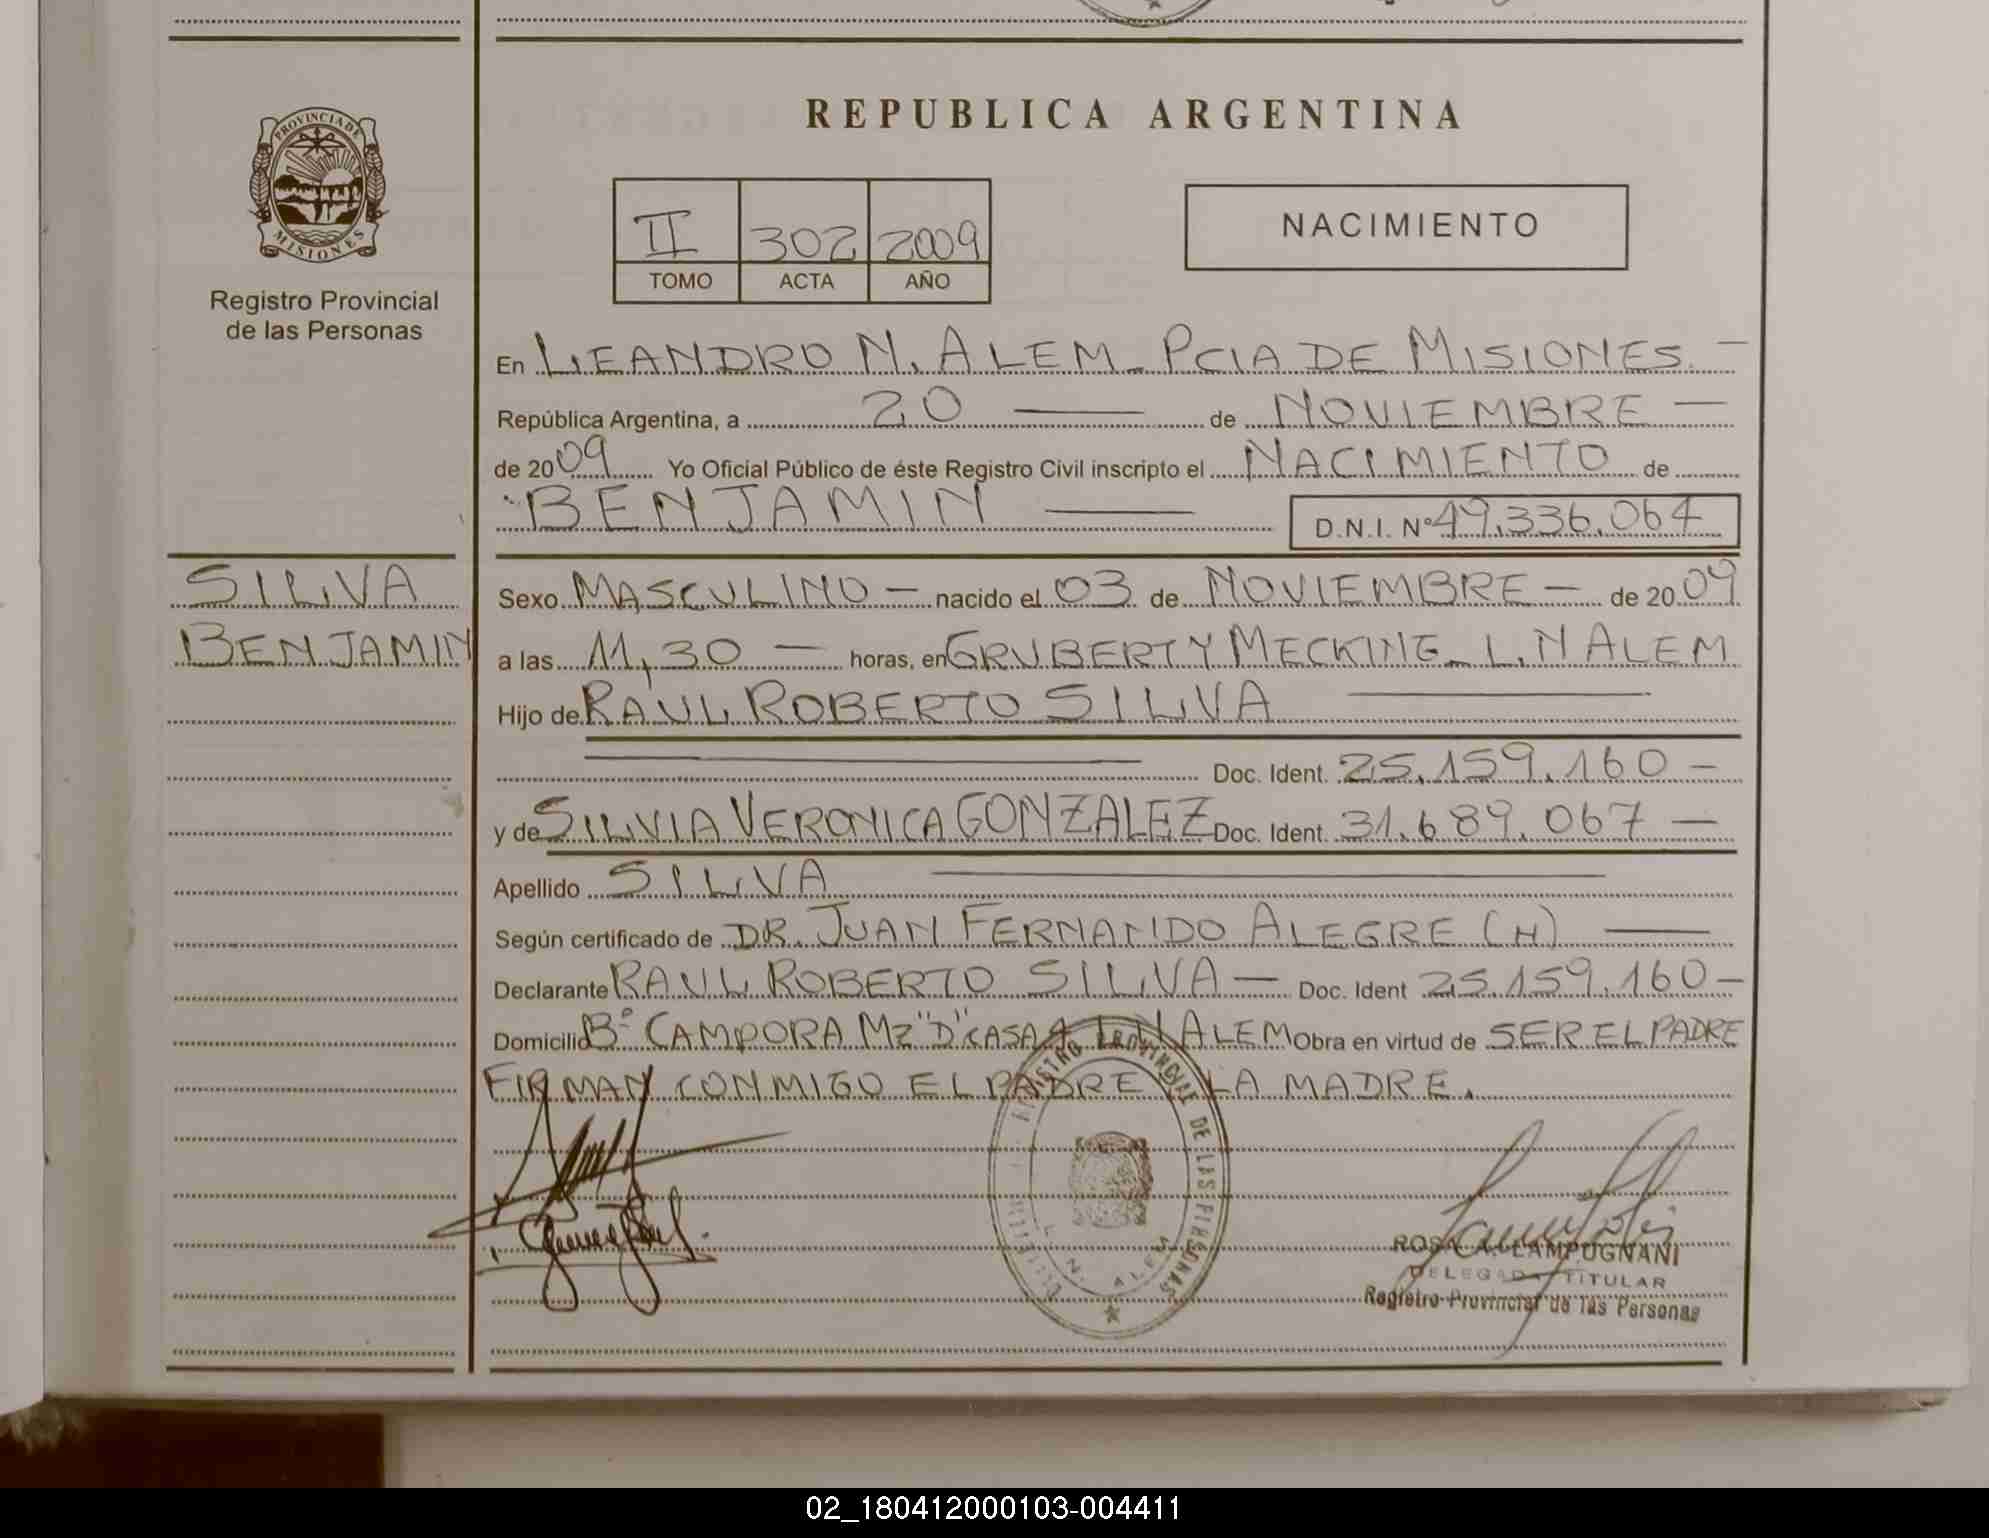 REPUBLICA ARGENTINA
PROVINCIA DE MISIONES
Registro Provincial
de las Personas
II 302 2009
TOMO ACTA AÑO
NACIMIENTO
En LEANDRO N. ALEM - PCIA DE MISIONES. -
República Argentina, a 20 — de NOVIEMBRE —
de 2009 Yo Oficial Público de éste Registro Civil inscripto el NACIMIENTO de
BENJAMIN — D.N.I. Nº 49.336.064
SILVA
BENJAMIN
Sexo MASCULINO — nacido el 03 de NOVIEMBRE — de 2009
a las 11,30 — horas, en GRUBERT Y MECKING - L. N ALEM
Hijo de RAUL ROBERTO SILVA —
— Doc. Ident. 25.159.160 —
y de SILVIA VERONICA GONZALEZ Doc. Ident. 31.689.067 —
Apellido SILVA —
Según certificado de DR. JUAN FERNANDO ALEGRE (H) —
Declarante RAUL ROBERTO SILVA — Doc. Ident 25.159.160 —
Domicilio Bº CAMPORA MZ "D" CASA L. N ALEM Obra en virtud de SER EL PADRE
FIRMAN CONMIGO EL PADRE LA MADRE.
REGISTRO PROVINCIAL DE LAS PERSONAS
L. N. ALEM
ROSA A. LAMPUGNANI
DELEGADA TITULAR
Registro Provincial de las Personas
02_180412000103-004411